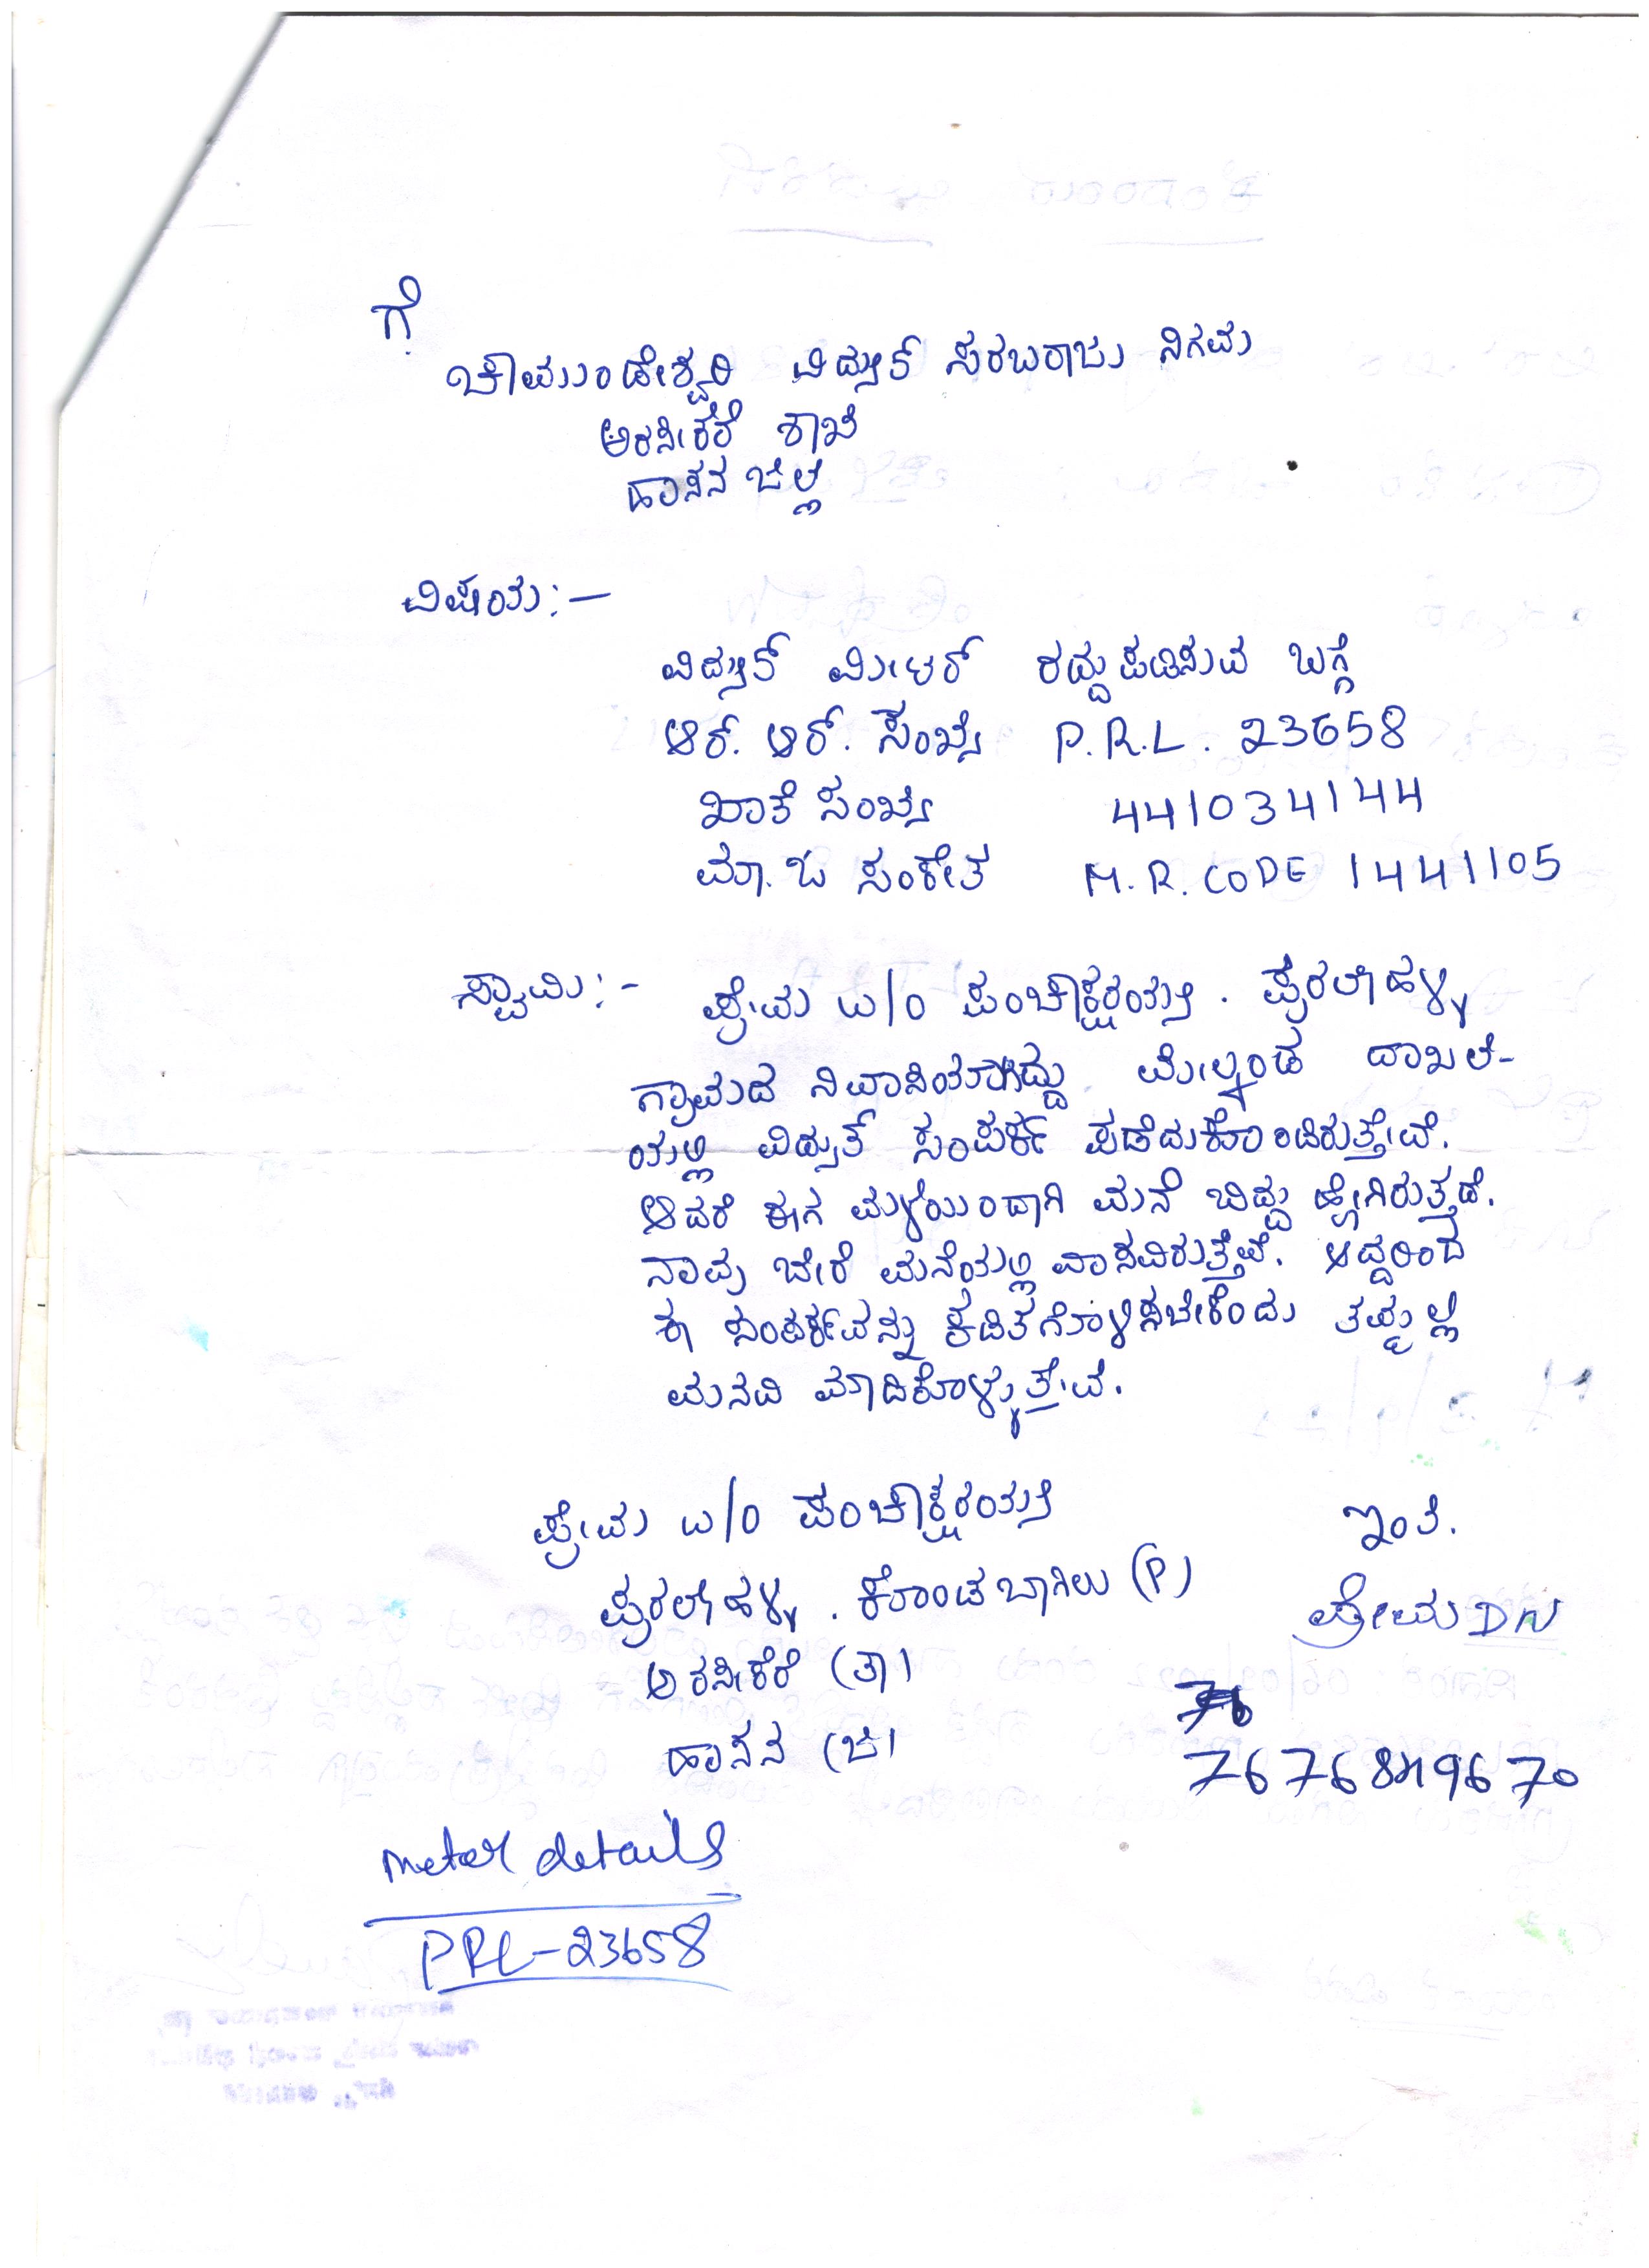 ಗೆ
ಚಾಮುಂಡೇಶ್ವರಿ ವಿದ್ಯುತ್ ಸರಬರಾಜು ನಿಗಮ
ಅರಸೀಕೆರೆ ಶಾಖೆ
ಹಾಸನ ಜಿಲ್ಲೆ
ವಿಷಯ:-
ವಿದ್ಯುತ್ ಮೀಟರ್ ರದ್ದುಪಡಿಸುವ ಬಗ್ಗೆ
ಆರ್. ಆರ್. ಸಂಖ್ಯೆ P.R.L. 23658
ಖಾತೆ ಸಂಖ್ಯೆ 441034144
ಮಾ. ಓ ಸಂಕೇತ M.R. CODE 1441105
ಸ್ವಾಮಿ:- ಪ್ರೇಮ W/O ಪಂಚಾಕ್ಷರಯ್ಯ. ಪುರಲೇಹಳ್ಳಿ
ಗ್ರಾಮದ ನಿವಾಸಿಯಾಗಿದ್ದು ಮೇಲ್ಕಂಡ ದಾಖಲೆ-
ಯಲ್ಲಿ ವಿದ್ಯುತ್ ಸಂಪರ್ಕ ಪಡೆದುಕೊಂಡಿರುತ್ತೇವೆ.
ಆದರೆ ಈಗ ಮಳೆಯಿಂದಾಗಿ ಮನೆ ಬಿದ್ದು ಹೋಗಿರುತ್ತದೆ.
ನಾವು ಬೇರೆ ಮನೆಯಲ್ಲಿ ವಾಸವಿರುತ್ತೇವೆ. ಆದ್ದರಿಂದ
ಈ ಸಂಪರ್ಕವನ್ನು ಕಡಿತಗೊಳಿಸಬೇಕೆಂದು ತಮ್ಮಲ್ಲಿ
ಮನವಿ ಮಾಡಿಕೊಳ್ಳುತ್ತೇವೆ.
ಪ್ರೇಮ W/O ಪಂಚಾಕ್ಷರಯ್ಯ ಇಂತಿ.
ಪುರಲೇಹಳ್ಳಿ. ಕೊಂಡಬಾಗಿಲು (P) ಪ್ರೇಮ DN
ಅರಸೀಕೆರೆ (ತಾ)
ಹಾಸನ (ಜಿ) 7676849670
meter details
PRL-23658